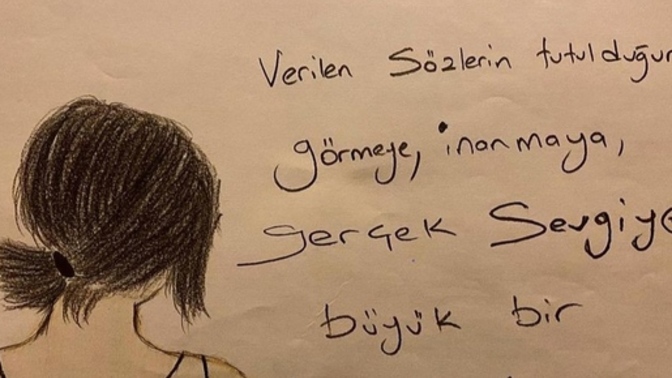 Verilen Sözlerin tutulduğun
görmeye, inanmaya,
gerçek Sevgiye
büyük bir